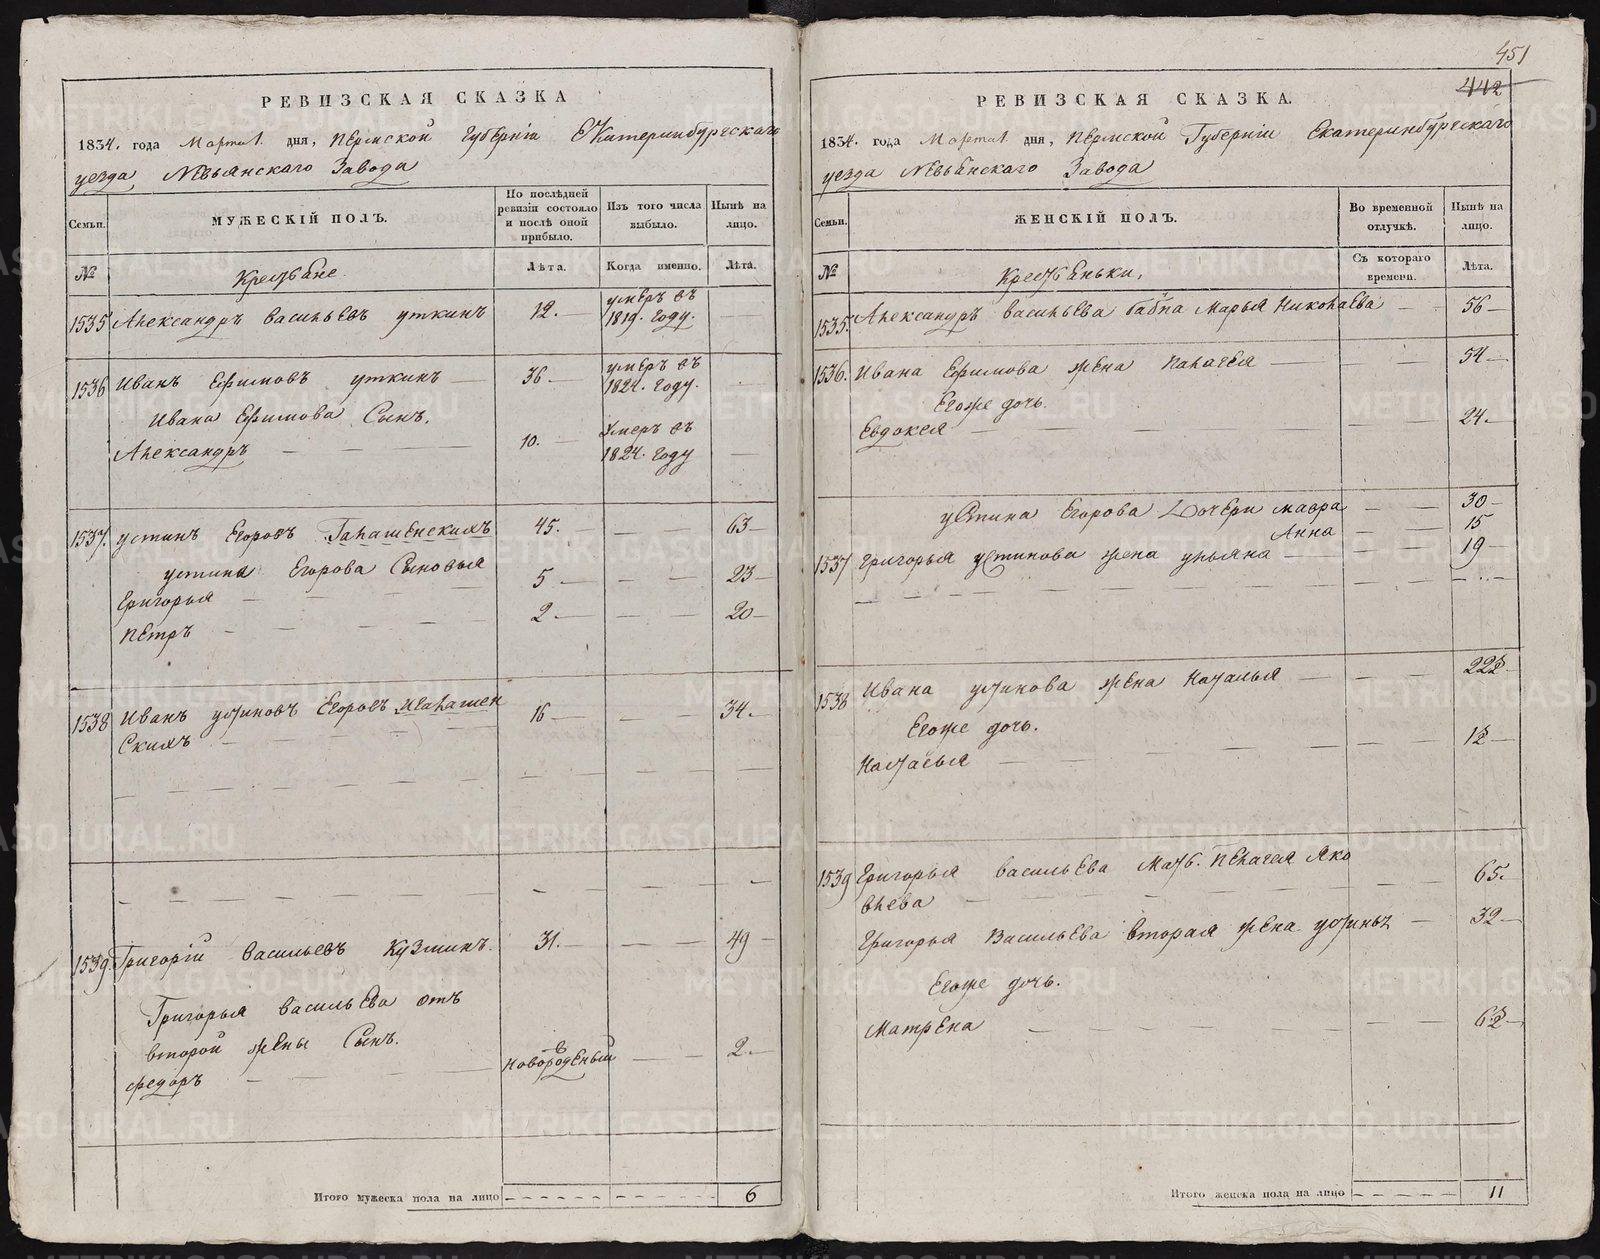 РЕВИЗСКАЯ СКАЗКА
1834. года Марта дня, Пермской губернiи Екатеринбургскаго
уезда Невьянскаго Завода
Семьи.
МУЖЕСКIЙ ПОЛЪ.
По послѣдней ревизiи состояло и послѣ оной прибыло.
Изъ того числа выбыло.
Нынѣ на лицо.
№
Крестьяне.
Лѣта.
Когда именно.
Лѣта.
1535 Александръ васильевъ уткинъ 12. умеръ въ 1819. году.
1536 Иванъ Ефимовъ уткинъ 36. умеръ въ 1824. году.
Ивана Ефимова Сынъ.
Александръ 10. Умеръ въ 1824. году
1537. устинъ Егоровъ Галашенскихъ 45. 63
устина Егорова Сыновья
Григорья 5 23
Петръ 2 20
1538 Иванъ устиновъ Егоровъ
Скихъ 16 34.
1539. Григорiй васильевъ Кузминъ. 31. 49
Григорья васильева отъ
второй жены Сынъ.
федоръ 2.
Итого мужеска пола на лицо 6
451
442
РЕВИЗСКАЯ СКАЗКА.
1834. года Марта дня, Пермской Губернiи Екатеринбургскаго
уезда Невьянскаго Завода
Семьи.
ЖЕНСКIЙ ПОЛЪ.
Во временной отлучкѣ.
Нынѣ на лицо.
№
Крестьяньки,
Съ котораго времени.
Лѣта.
1535. Александръ васильева бабка Марья Николаева 56
1536. Ивана Ефимова жена Палагея 54
Егоже дочь.
Евдокея 24.
устина Егорова Дочери мавра 30
Анна 15
1537 Григорья устинова жена ульяна 19
1538 Ивана устинова жена Наталья
Егоже дочь.
Настасья
1539 Григорья васильева Мать. Пелагея Яко
влева 65.
Григорья Васильева вторая жена устинья 32
Егоже дочь.
Матрена
Итого женска пола на лицо 11
METRIKI.GASO-URAL.RU